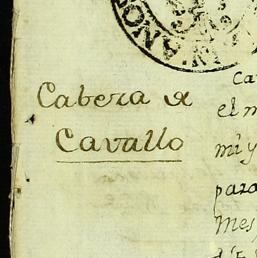 Cabeza de
Cavallo
Ca
el m
mi y
para
Mes